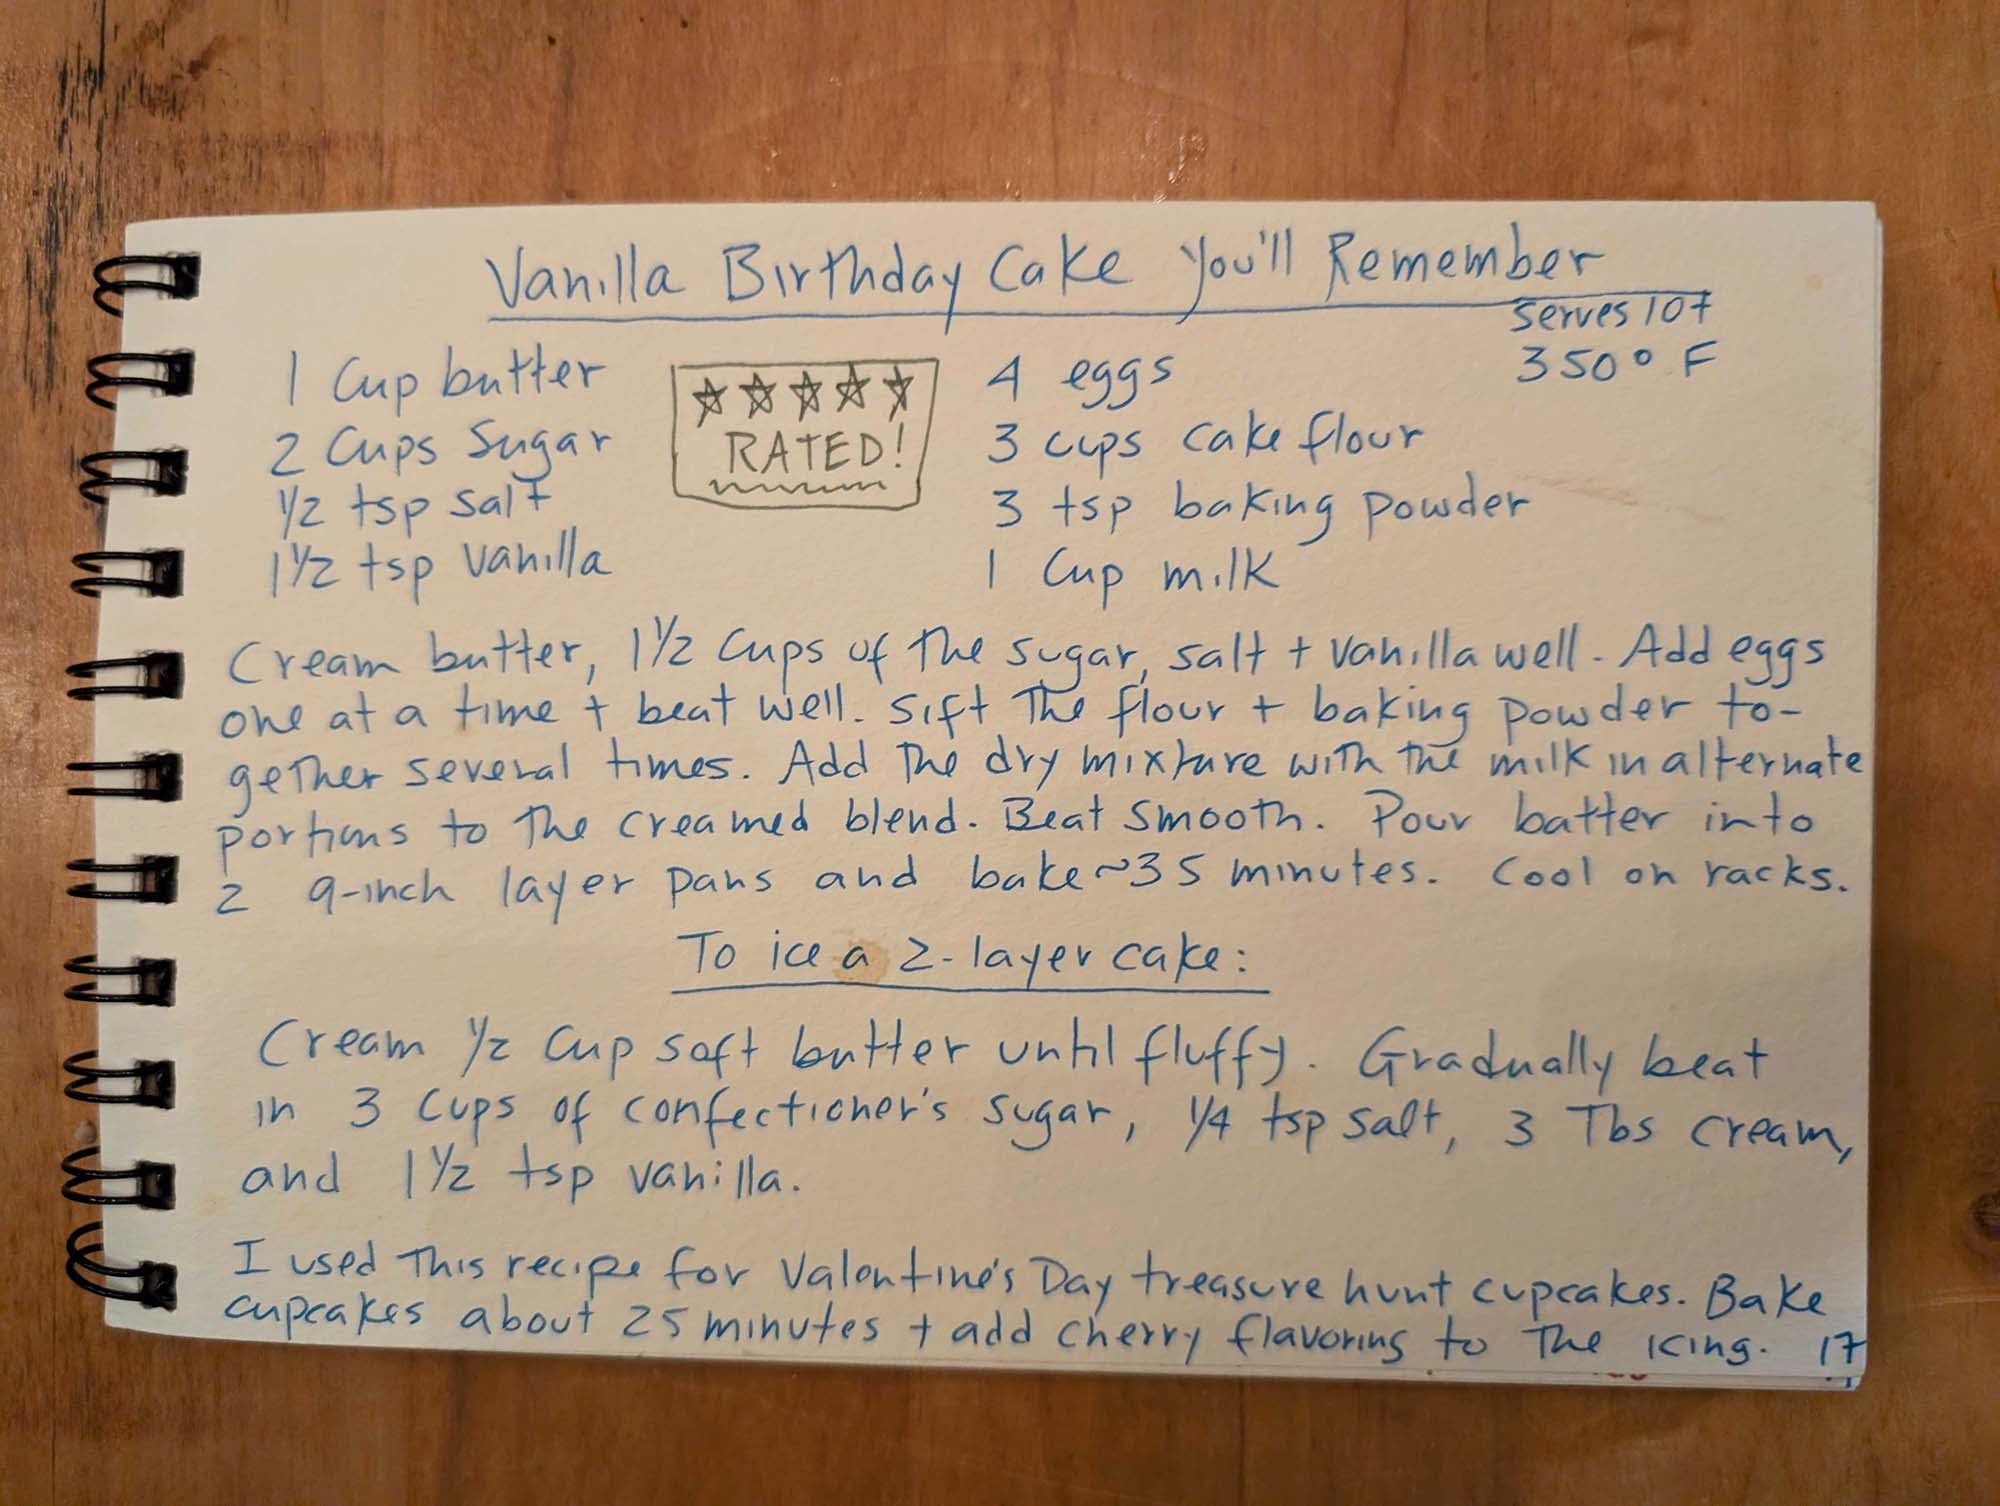 Vanilla Birthday Cake You'll Remember
Serves 10+
350° F
1 Cup butter
2 Cups Sugar
1/2 tsp salt
1 1/2 tsp vanilla
☆☆☆☆☆
RATED!
4 eggs
3 cups cake flour
3 tsp baking powder
1 Cup milk
Cream butter, 1 1/2 Cups of the sugar, salt + vanilla well. Add eggs
one at a time + beat well. Sift the flour + baking powder to-
gether several times. Add the dry mixture with the milk in alternate
portions to the creamed blend. Beat smooth. Pour batter into
2 9-inch layer pans and bake ~35 minutes. Cool on racks.
To ice a 2-layer cake:
Cream 1/2 Cup soft butter until fluffy. Gradually beat
in 3 Cups of confectioner's sugar, 1/4 tsp salt, 3 Tbs cream,
and 1 1/2 tsp vanilla.
I used this recipe for Valentine's Day treasure hunt cupcakes. Bake
cupcakes about 25 minutes + add cherry flavoring to the icing. 17